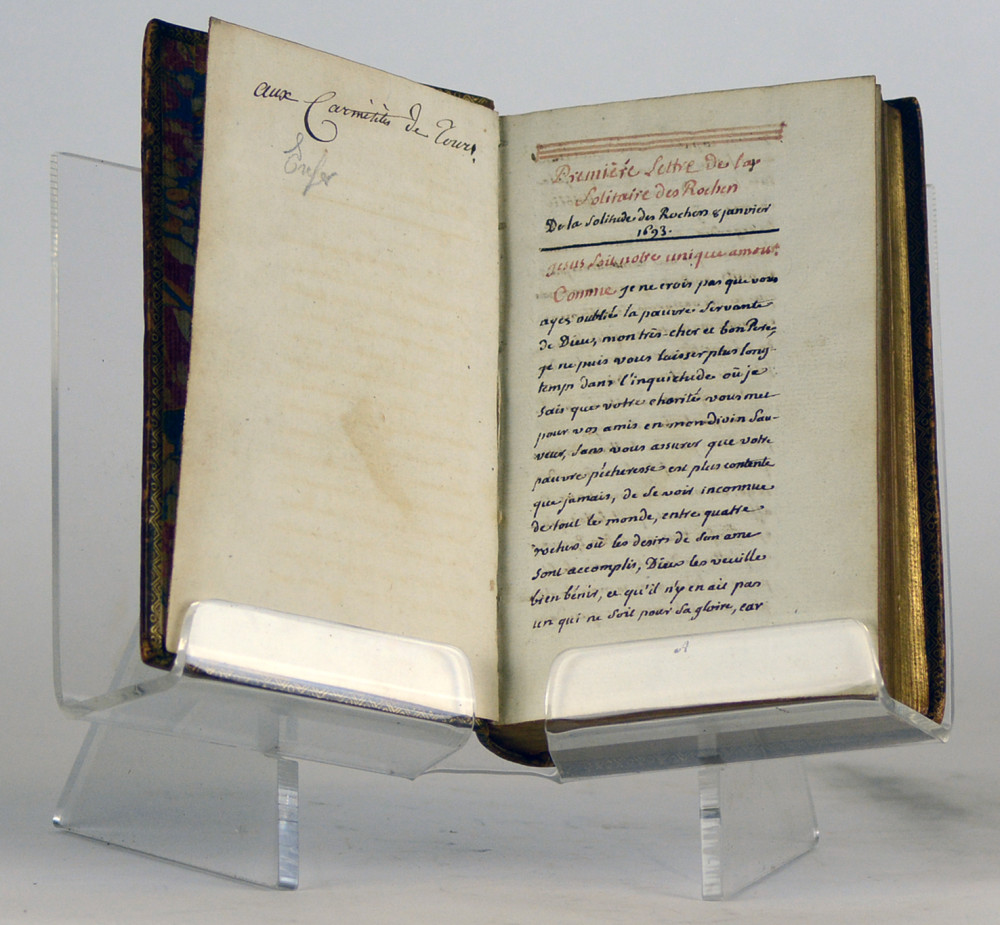 aux Carmélites de Tours
Première Lettre de la
Solitaire des Rochers
De la Solitude des Rochers 8 janvier
1693.
Jesus soit votre unique amour.
Comme je ne crois pas que vous
ayez oublié la pauvre servante
de Dieu, mon très-cher et bon Pere,
je ne puis vous laisser plus long-
temps dans l'inquietude où je
sais que votre charité vous met
pour vos amis en mon divin Sau-
veur, sans vous assurer que votre
pauvre pécheresse est plus contente
que jamais, de se voir inconnue
de tout le monde, entre quatre
rochers où les desirs de son ame
sont accomplis, Dieu les veuille
bien bénir, et qu'il n'y en ait pas
un qui ne soit pour sa gloire, car
A